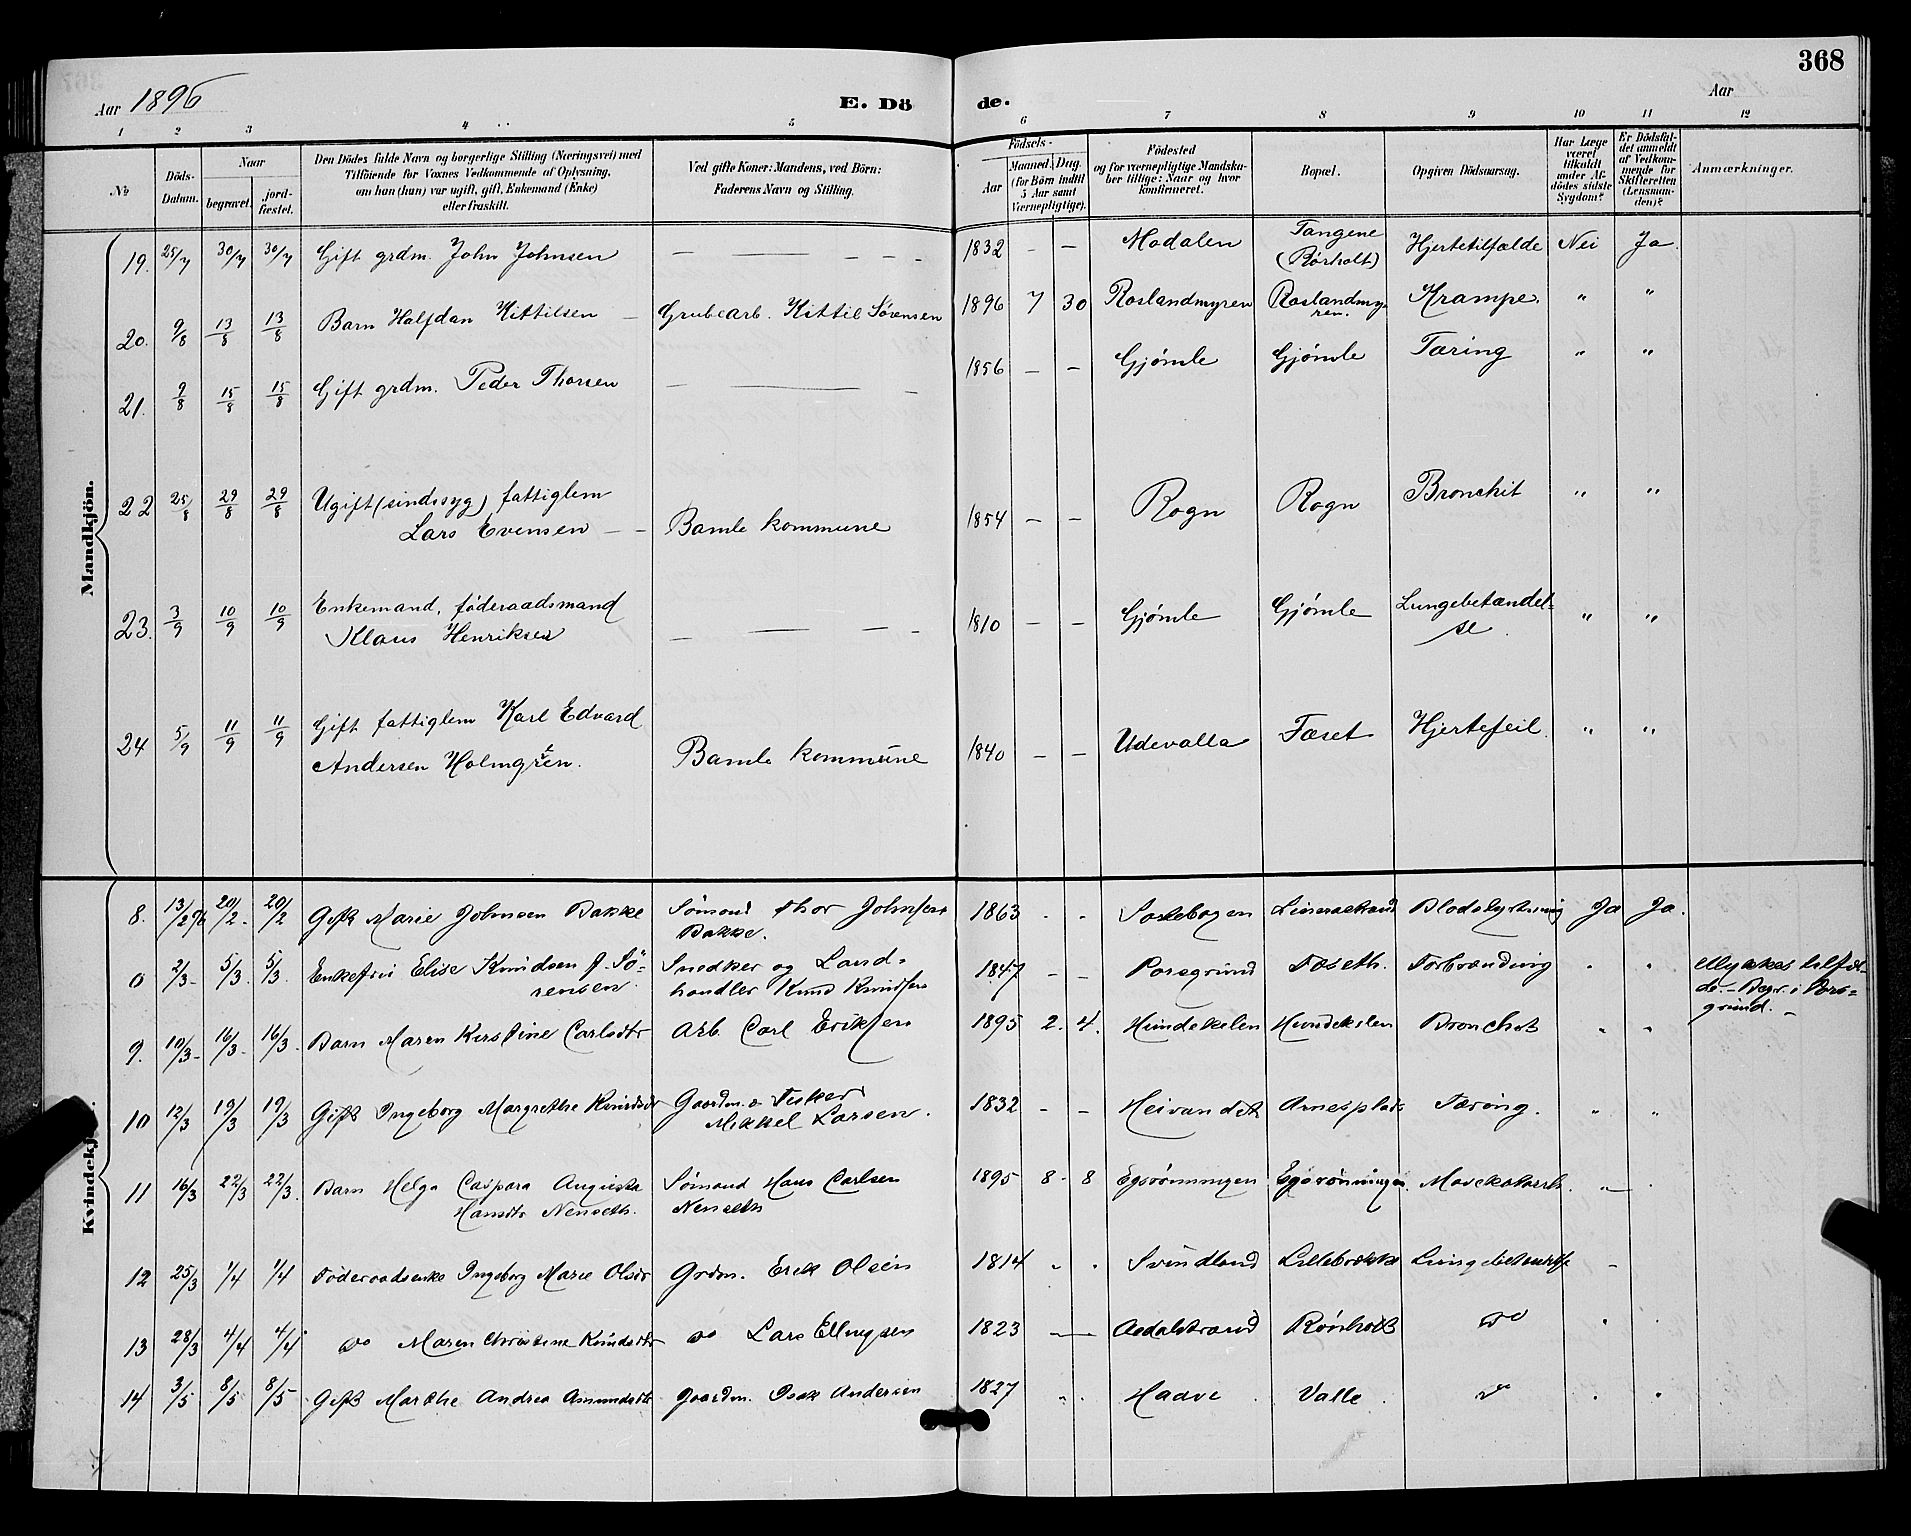 368
Aar 1896
E. Dö de.
Aar
1 2 3 4 5 6 7 8 9 10 11 12
No
Döds-Datum.
Naar
begravet.
jordfæstet.
Den Dödes fulde Navn og borgerlige Stilling (Næringsvei) med
Tilföiende for Voxnes Vedkommende af Oplysning,
om han (hun) var ugift, gift, Enkemand (Enke)
eller fraskilt.
Ved gifte Koner: Mandens, ved Börn:
Faderens Navn og Stilling.
Födsels-
Aar
Maaned. Dag.
(for Börn indtil
5 Aar samt
Værnepligtige).
Födested
og for værnepligtige Mandska-
ber tillige: Naar og hvor
konfirmeret.
Bopæl.
Opgiven Dödsaarsag.
Har Læge
været
tilkaldt
under Af-
dödes sidste
Sygdom?
Er Dödsfal-
det anmeldt
af Vedkom-
mende for
Skifteretten
(Lensman-
den)?
Anmærkninger.
Mandkjön.
19. 25/7 30/7 30/7 Gift grdm. John Johnsen — — — — — 1832 — — Modalen Tangene (Rörholt) Hjertetilfælde Nei Ja.
20. 9/8 13/8 13/8 Barn Halfdan Kittilsen — Grubearb. Kittil Sørensen 1896 7 30 Roslandmyren Roslandmyren. Krampe. " "
21. 9/8 15/8 15/8 Gift grdm. Peder Thorsen — — — 1856 — — Gjömle Gjömle Tæring " "
22 25/8 29/8 29/8 Ugift (sindssyg) fattiglem
Lars Evensen — — Bamle kommune 1854 — — Rogn Rogn Bronchit " "
23. 3/9 10/9 10/9 Enkemand, föderaadsmand
Klaus Henriksen — — — — 1810 — — Gjömle Gjömle Lungebetændelse. " "
24 5/9 11/9 11/9 Gift fattiglem Karl Edvard
Andersen Holmgren. Bamle kommune 1840 — — Udevalla Fæset Hjertefeil. " "
Kvindekj
8. 13/2 96 20/2. 20/2 Gift Marie Johnsen Bakke Sömand Thor Johnsen
Bakke. 1863 - - Blodstyrtning Ja Ja.
0 2/3- 5/3. 5/3. Enkefru Elise Knudsen f. Sö-
rensen. Snedker og Land-
handler Knud Knudsen 1847 - - Porsgrund Fæseth. Forbrænding " " Ulykkestilfæl-
de. - Begr. i Pors-
grund. -
9. 10/3- 16/3- 16/3. Barn Maren Kirstine Carlsdtr Arb. Carl Eriksen 1895 2. 4. Hundekelen Hundekelen Bronchit " "
10 12/3 19/3 19/3 Gift Ingeborg Margrethe Knudsdtr Gaardm. o. Fisker
Mikkel Larsen. 1832 - - Heivandet Arnesplads Tæring. " "
11 16/3 22/3 22/3. Barn Helga Caspara Augusta
Hansdtr Nenseth. Sömand Hans Carlsen
Nenseth 1895 8 - 8 Egsrönningen Egsrönningen.
12 25/3 1/4 1/4 Föderaadsenke Ingeborg Marie Olsdtr Grdm. Erik Olsen 1814 " . Svindland Lillebakke Lungebetændelse
13 28/3 4/4 4/4 do Maren Christine Knudsdtr do Lars Ellingsen 1823 — Aadalstrand Rönholt do " .
14 3/5 8/5 8/5 Gift Marthe Andrea Amundsdtr gaardm. Isak Andersen 1827 " . Haave Valle. do " "